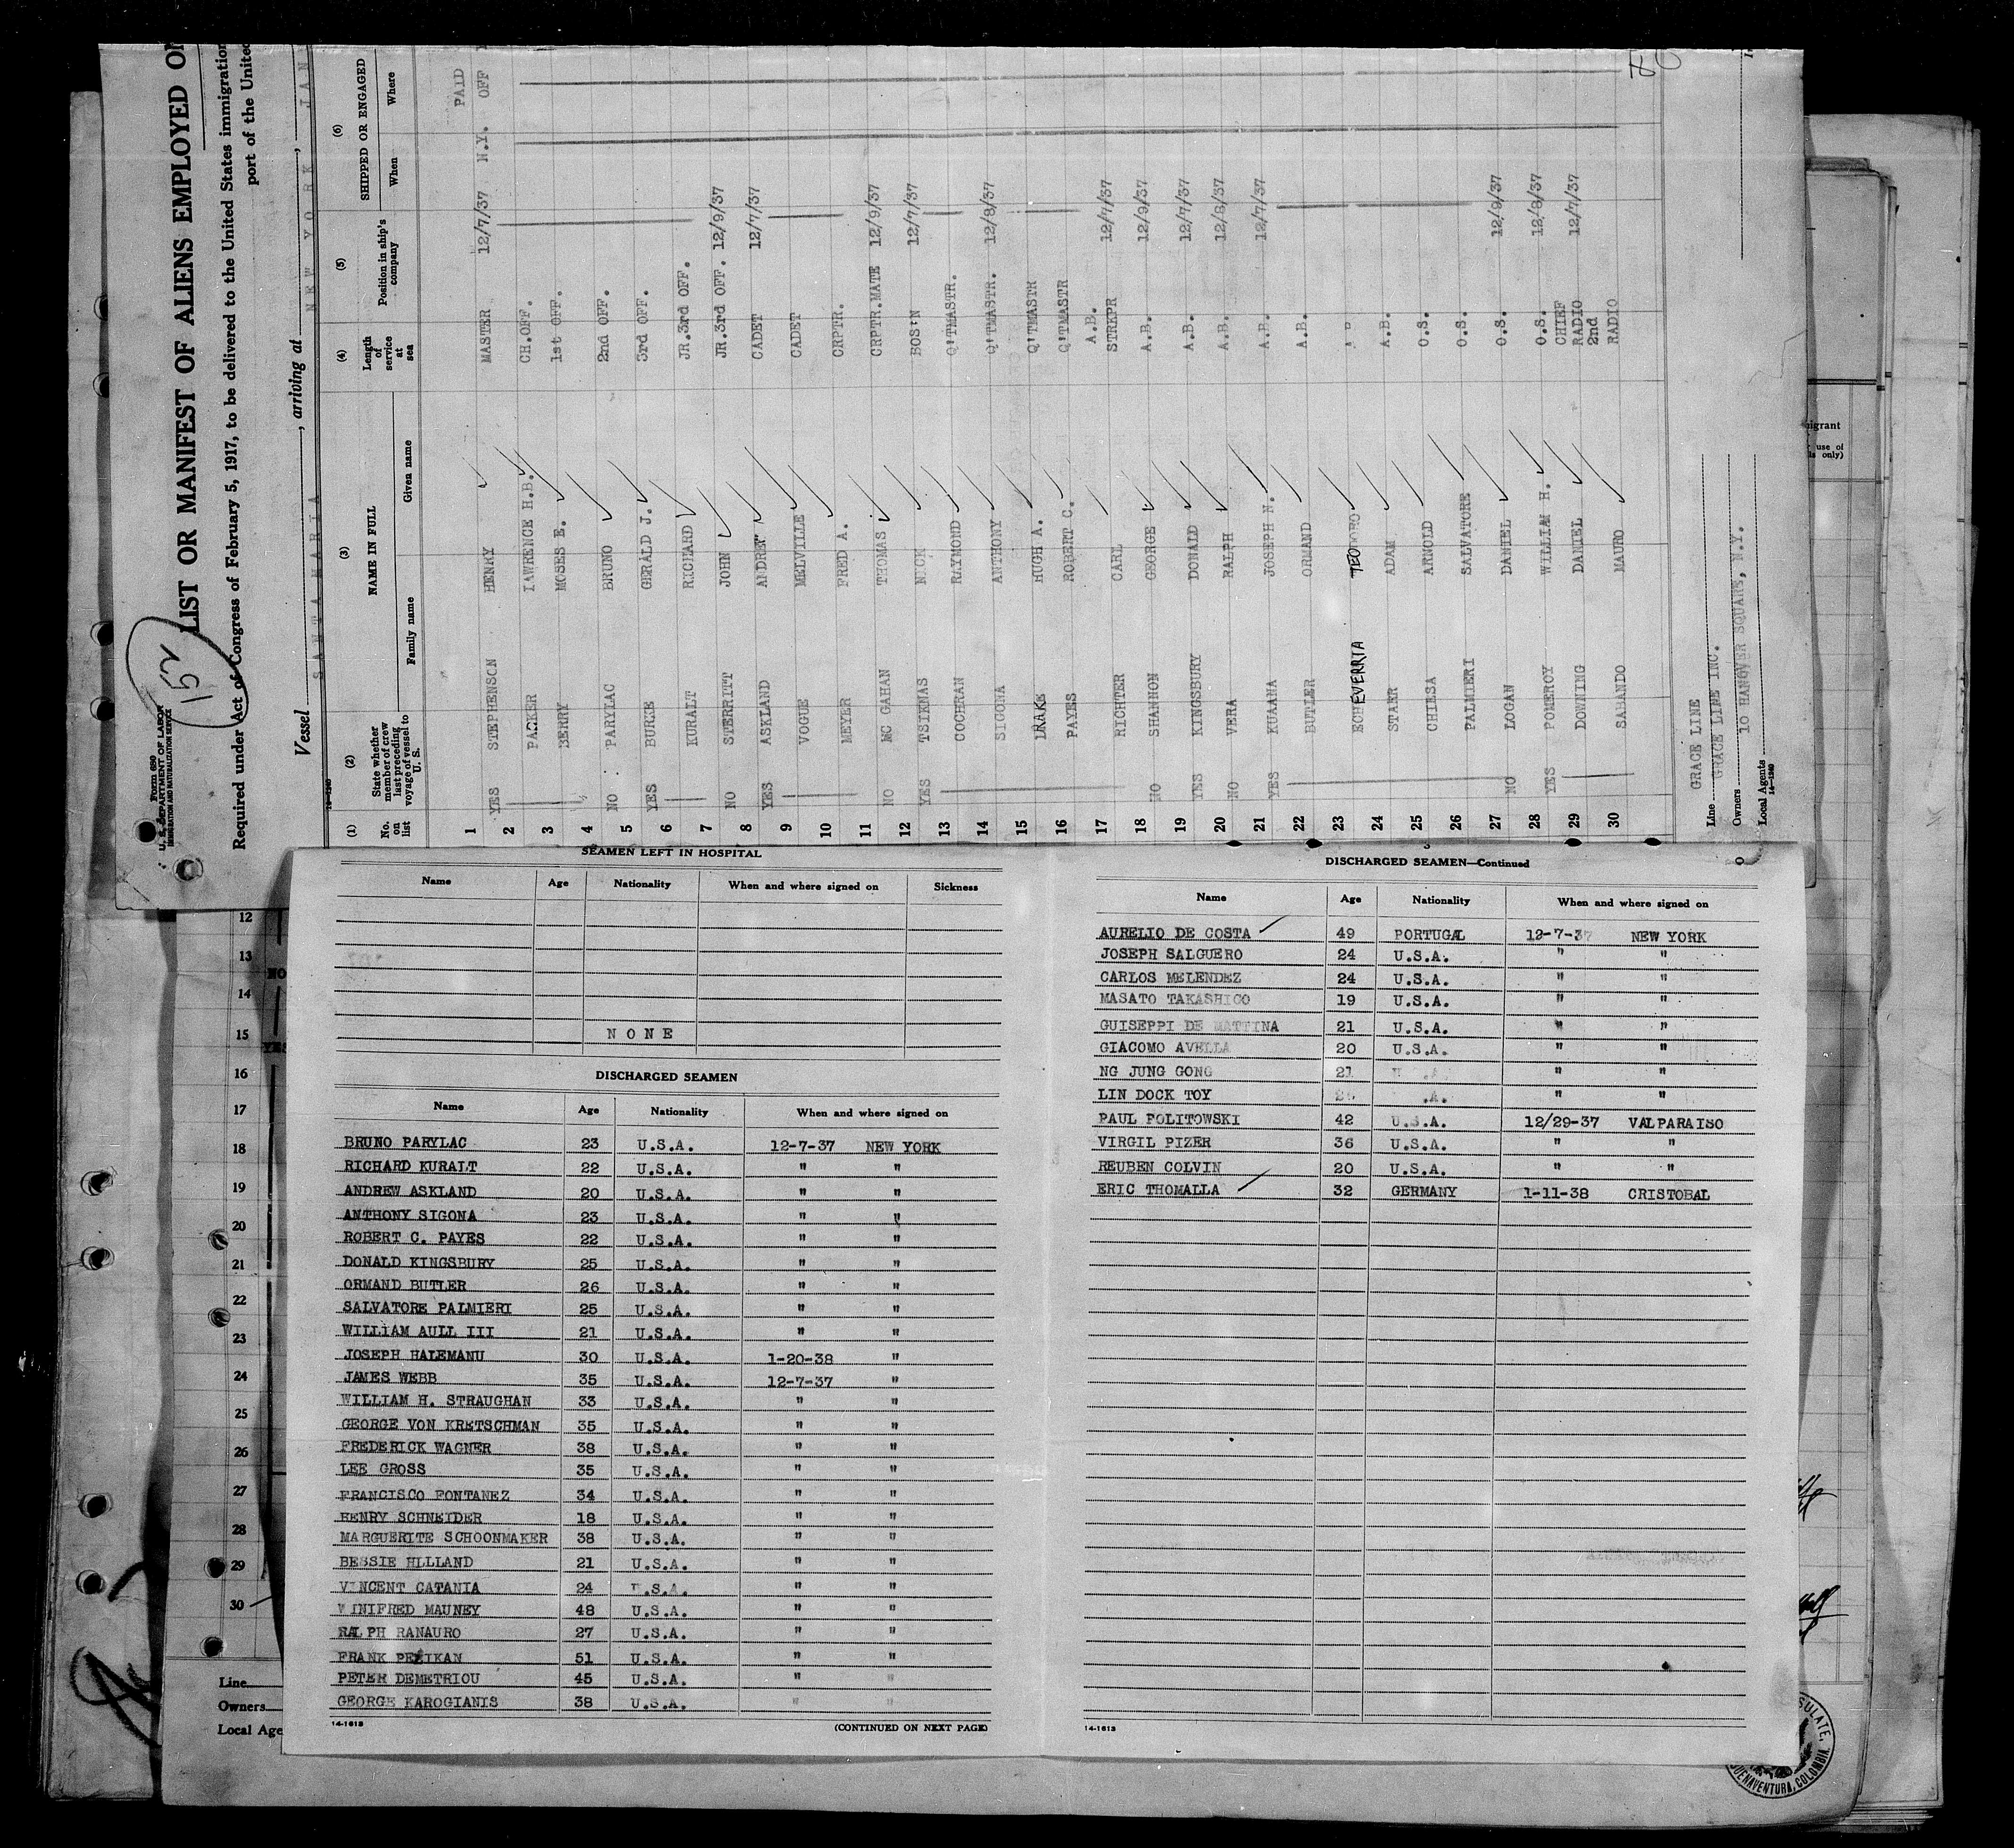 Form 680
U. S. DEPARTMENT OF LABOR
IMMIGRATION AND NATURALIZATION SERVICE
LIST OR MANIFEST OF ALIENS EMPLOYED ON
Required under Act of Congress of February 5, 1917, to be delivered to the United States immigration
port of the United
Vessel SANTA MARIA, arriving at NEW YORK, JAN
14-1240
(1) (2) (3) (4) (5) (6)
No. on list
State whether member of crew last preceding voyage of vessel to U. S.
NAME IN FULL
Family name Given name
Length of service at sea
Position in ship's company
SHIPPED OR ENGAGED
When Where
PAID
1 YES STEPHENSON HENRY MASTER 12/7/37 N.Y. OFF
2 PACKER LAWRENCE H.B. CH.OFF.
3 BERRY MOSES E. 1st OFF.
4 NO PARYLAC BRUNO 2nd OFF.
5 YES BURKE GERALD J. 3rd OFF.
6 KURALT RICHARD JR.3rd OFF.
7 NO STERRITT JOHN JR.3rd OFF. 12/9/37
8 YES ASKLAND ANDREW CADET 12/7/37
9 VOGUE MELVILLE CADET
10 MEYER FRED A. CRPTR.
11 NO MC GAHAN THOMAS CRPTR.MATE 12/9/37
12 YES TSIKNAS NICK BOS'N 12/7/37
13 COCHRAN RAYMOND Q'TMASTR.
14 SIGONA ANTHONY Q'TMASTR. 12/8/37
15 DRAKE HUGH A. Q'TMASTR
16 PAYES ROBERT C. Q'TMASTR
17 RICHTER CARL A.B. STRKPR 12/7/37
18 NO SHANNON GEORGE A.B. 12/9/37
19 YES KINGSBURY DONALD A.B. 12/7/37
20 NO VERA RALPH A.B. 12/8/37
21 YES KUAANA JOSEPH N. A.B. 12/7/37
22 BUTLER ORMAND A.B.
23 ECHEVERRIA TEODORO
24 STARR ADAM A.B.
25 CHIESA ARNOLD O.S.
26 PALMIERI SALVATORE O.S.
27 NO LOGAN DANIEL O.S. 12/9/37
28 YES POMEROY WILLIAM H. O.S. 12/8/37
29 DOWNING DANIEL CHIEF RADIO 12/7/37
30 SABANDO MAURO 2nd RADIO
GRACE LINE
Line GRACE LINE INC.
Owners 10 HANOVER SQUARE, N.Y.
Local Agents
14-1240
igrant
use of
ls only)
SEAMEN LEFT IN HOSPITAL
Name Age Nationality When and where signed on Sickness
NONE
DISCHARGED SEAMEN
Name Age Nationality When and where signed on
BRUNO PARYLAC 23 U.S.A. 12-7-37 NEW YORK
RICHARD KURALT 22 U.S.A. " "
ANDREW ASKLAND 20 U.S.A. " "
ANTHONY SIGONA 23 U.S.A. " "
ROBERT C. PAYES 22 U.S.A. " "
DONALD KINGSBURY 25 U.S.A. " "
ORMAND BUTLER 26 U.S.A. " "
SALVATORE PALMIERI 25 U.S.A. " "
WILLIAM AULL III 21 U.S.A. " "
JOSEPH HALEMANU 30 U.S.A. 1-20-38 "
JAMES WEBB 35 U.S.A. 12-7-37 "
WILLIAM H. STRAUGHAN 33 U.S.A. " "
GEORGE VON KRETSCHMAN 35 U.S.A. " "
FREDERICK WAGNER 38 U.S.A. " "
LEE GROSS 35 U.S.A. " "
FRANCISCO FONTANEZ 34 U.S.A. " "
HENRY SCHNEIDER 18 U.S.A. " "
MARGUERITE SCHOONMAKER 38 U.S.A. " "
BESSIE HLLLAND 21 U.S.A. " "
VINCENT CATANIA 24 U.S.A. " "
WINIFRED MAUNEY 48 U.S.A. " "
RALPH RANAURO 27 U.S.A. " "
FRANK PELIKAN 51 U.S.A. " "
PETER DEMETRIOU 45 U.S.A. " "
GEORGE KAROGIANIS 38 U.S.A. " "
14-1613 (CONTINUED ON NEXT PAGE)
DISCHARGED SEAMEN—Continued
Name Age Nationality When and where signed on
AURELIO DE COSTA 49 PORTUGAL 12-7-37 NEW YORK
JOSEPH SALGUERO 24 U.S.A. " "
CARLOS MELENDEZ 24 U.S.A. " "
MASATO TAKASHIGO 19 U.S.A. " "
GUISEPPI DE MATTINA 21 U.S.A. " "
GIACOMO AVELLA 20 U.S.A. " "
NG JUNG GONG 21 " "
LIN DOCK TOY " "
PAUL POLITOWSKI 42 U.S.A. 12/29-37 VALPARAISO
VIRGIL PIZER 36 U.S.A. " "
REUBEN COLVIN 20 U.S.A. " "
ERIC THOMALLA 32 GERMANY 1-11-38 CRISTOBAL
14-1613
12
13
NO
14
15
YES
16
17
18
19
20
21
22
23
24
25
26
27
28
29
30
Line
Owners
Local Age
SULATE,
BUENAVENTURA, COLOMBIA.